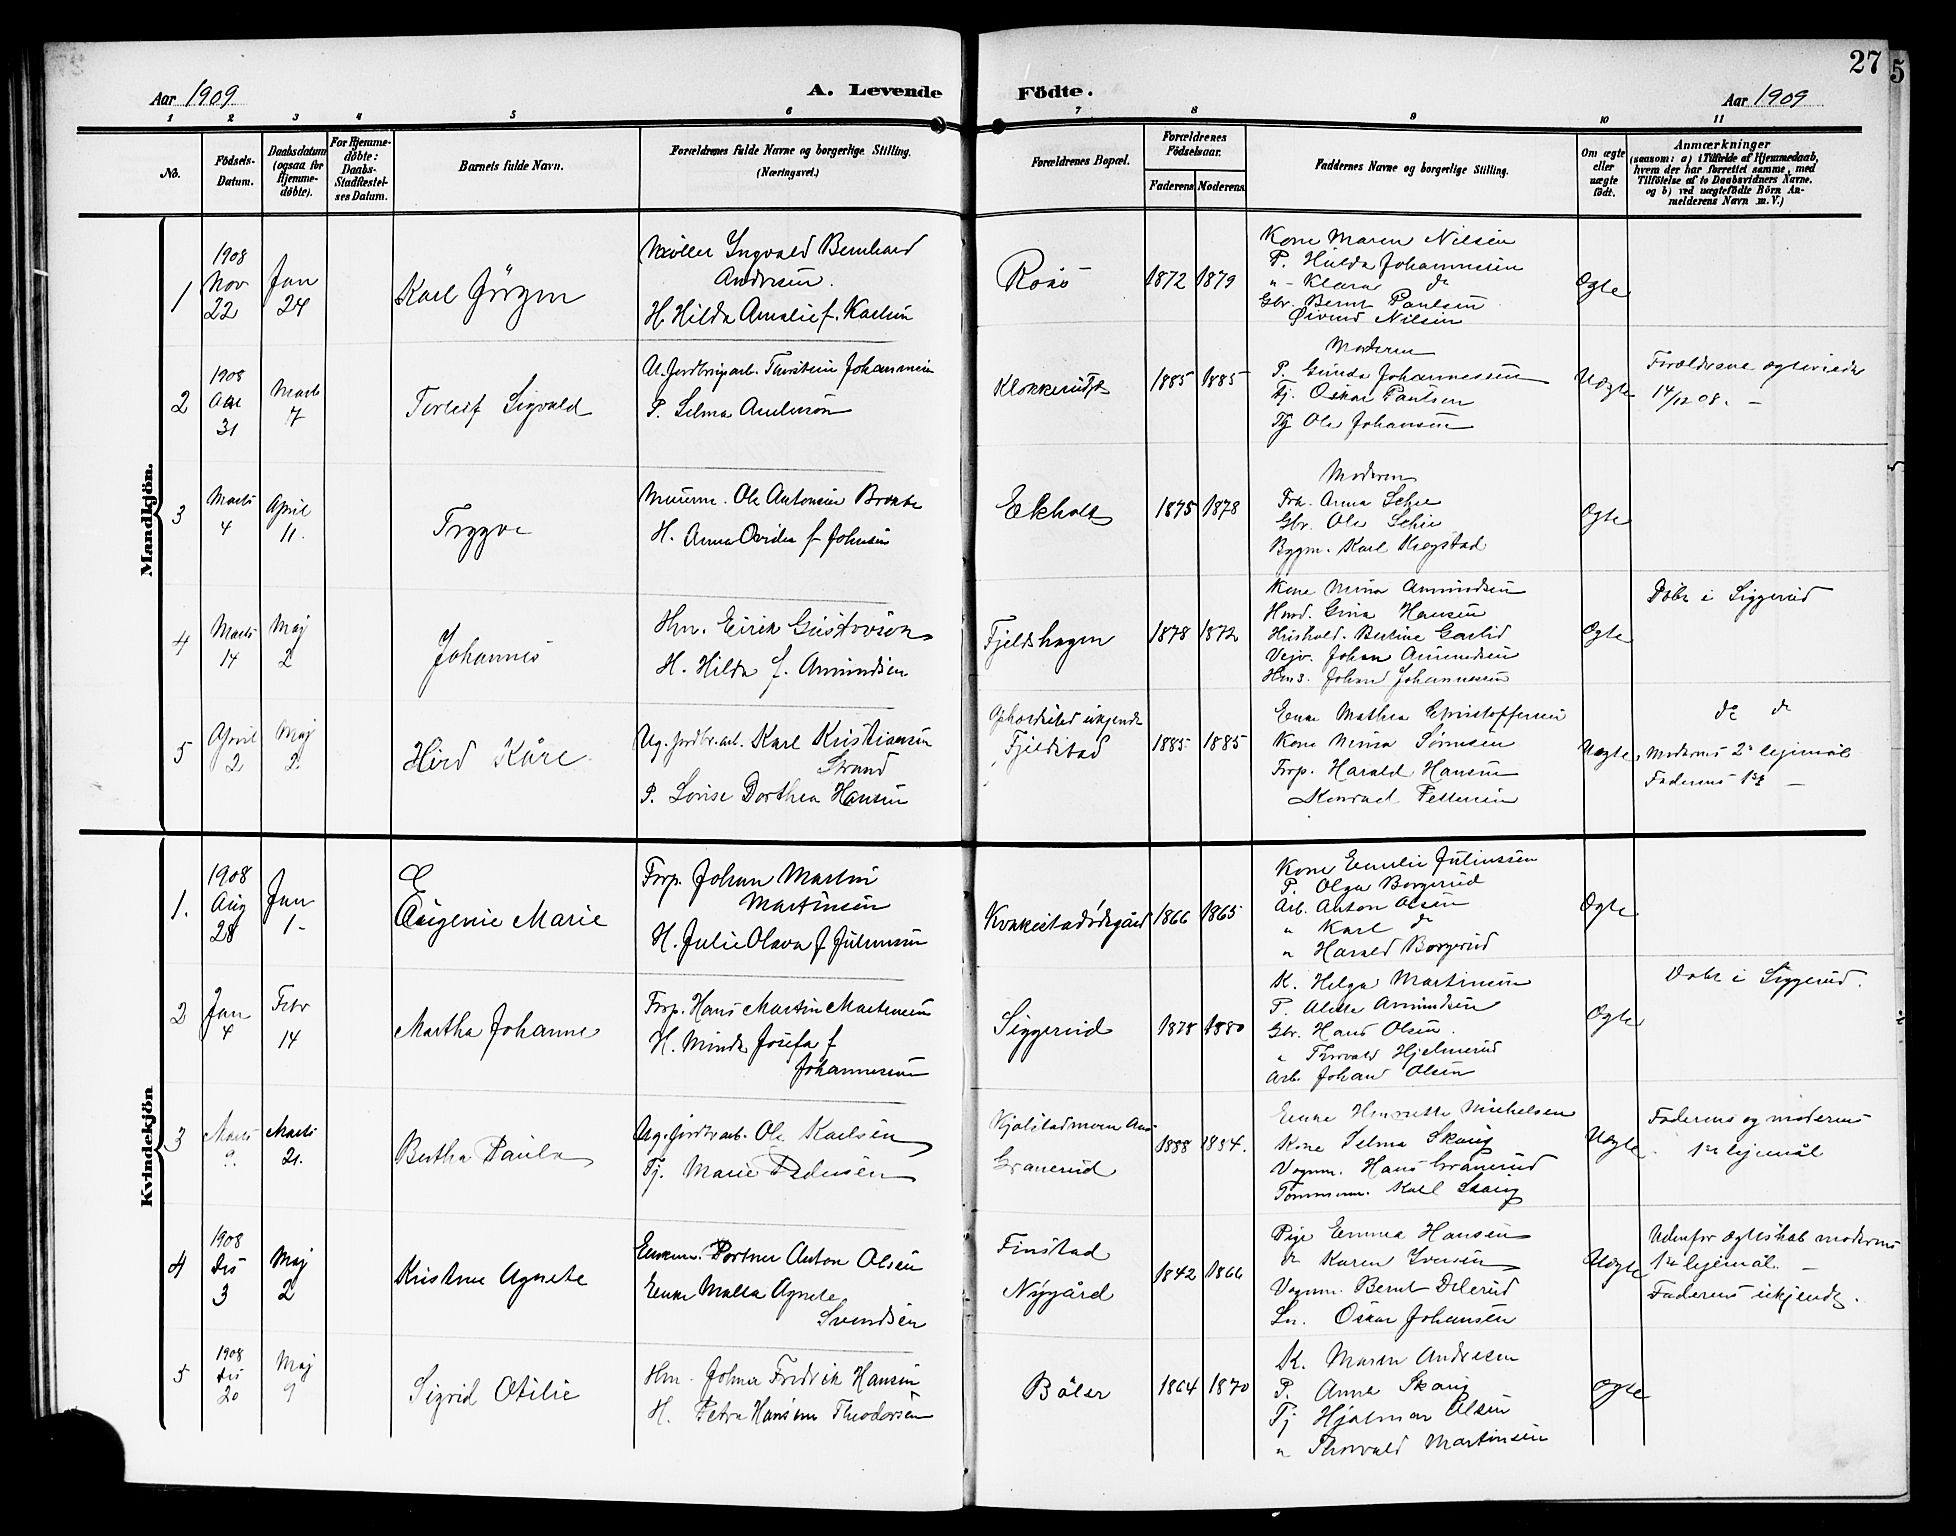 27
5
Aar 1909.
A. Levende
Födte.
Aar 1909
1 2 3 4 5 6 7 8 9 10 11
No.
Födsels-
Datum.
Daabsdatum
(ogsaa for
Hjemme-
döbte).
For Hjemme-
döbte:
Daabs-
Stadfæstel-
ses Datum.
Barnets fulde Navn.
Forældrenes fulde Navne og borgerlige Stilling.
(Næringsvei.)
Forældrenes Bopæl.
Forældrenes
Födselsaar.
Faderens
Moderens
Faddernes Navne og borgerlige Stilling.
Om ægte
eller
uægte
födt.
Anmærkninger
(saasom: a) i Tilfælde af Hjemmedaab,
hvem der har forrettet samme, med
Tilföielse af to Daabsvidners Navne.
og b) ved uægtefödte Börn An-
melderens Navn m. V.)
Mandkjön.
1
1908
Nov
22
Jan
24
Karl Jörgen
Møller Ingvald Bernhard
Andresen.
H. Hilda Amalie f. Karlsen
Roås
1872 1879
Kone Maren Nilsen
P. Hilda Johannesen
" Klara do
Gbr. Bernt Paulsen
Øivind Nilsen
Ægte
2
1908
31
Marts
7
Torleif Sigvald
U. Jordbrugarb. Thorstein Johannesen
P. Selma Andersen
Klokkerud
1885 1885
Moderen
P. Gunda Johannessen
Tj. Oskar Paulsen
Tj Ole Johansen
Uægte
Forældrene ægteviede
14/12 08. —
3
Marts
4
April
11.
Trygve
Murerm. Ole Antonsen Braate
H. Anna Ovidia f Johnsen
Ekholt
1875 1878
Moderen
Frk. Anna Schie
Gbr. Ole Schie
Bygm. Karl Kregstad
Ægte
4
Marts
14
Maj
2
Johannes
Hm. Eirik Gustavson
H. Hilda f. Amundsen
Fjeldshagen
1878 1872
Kone Mina Amundsen
Hmd. Gina Hansen
Hushold. Bertine Garlid
Vejv. Johan Amundsen
Hms. Johan Johannessen
Ægte
Døbt i Siggerud
5
April
2
Maj
2.
Hird Kåre
Ug. jordbr. arb. Karl Kristiansen
Strand
P. Lovise Dorthea Hansen
Opholdssted ukjendt
Fjeldstad
1885 1885
Enke Mathea Christoffersen
Kone Mina Simensen
Forp. Harald Hansen
Konrad Pettersen
Uægte
do do
Moderens 2de lejemål
Faderens 1ste —
Kvindekjön
1.
1908
Aug
28
Jan
1 -
E
Eugenie Marie
Forp. Johan Martin
Martinsen
H. Julie Olava f Juliussen
Kvakestadødegård
1866 1865
Kone Emilie Juliussen
P. Olga Borgerud
Arb. Anton Olsen
" Karl do
" Harald Borgerud
Ægte
2
Jan
4
Febr
14
Martha Johanne
Forp. Hans Martin Martinsen
H. Minda Josefa f
Johannessen
Siggerud
1878 1880
K. Helga Martinsen
P. Alette Amundsen
Gbr. Hans Olsen.
" Thorvald Hjelmerud
Arb. Johan Olsen
Ægte
Døbt i Siggerud.
3
Marts
9.
Marts
21.
Bertha Paula
Ug. jordbr arb. Ole Karlsen
Tj. Marie Pedersen
Kjølstadmoen Aas
Granerud
1888 1884.
Enke Henriette Michelsen
Kone Selma Skaug
Vognm. Hans Granerud
Tømmerm. Karl Skaug
Uægte
Faderens og moderens
1ste lejemål
4
1908
Des
3
Maj
2
Kristine Agnete
Enkem. Portner Anton Olsen
Enke Malla Agnete
Svendsen
Finstad
Nygård
1842 1866
Pige Emma Hansen
do Karen Iversen
Vognm. Bernt Delerud
Sn. Oskar Johansen
Uægte
Udenfor ægteskab moderens
1ste lejemål. —
Faderens ukjendt.
5
1908
Des
20
Maj
9
Sigrid Otilie
Hm. Johner Fredrik Hansen
H. Petra Hansine Theodorsen
Bøler
1864 1870
K. Maren Andresen
P. Anna Skaug
Tj Hjalmar Olsen
" Thorvald Martinsen
Ægte